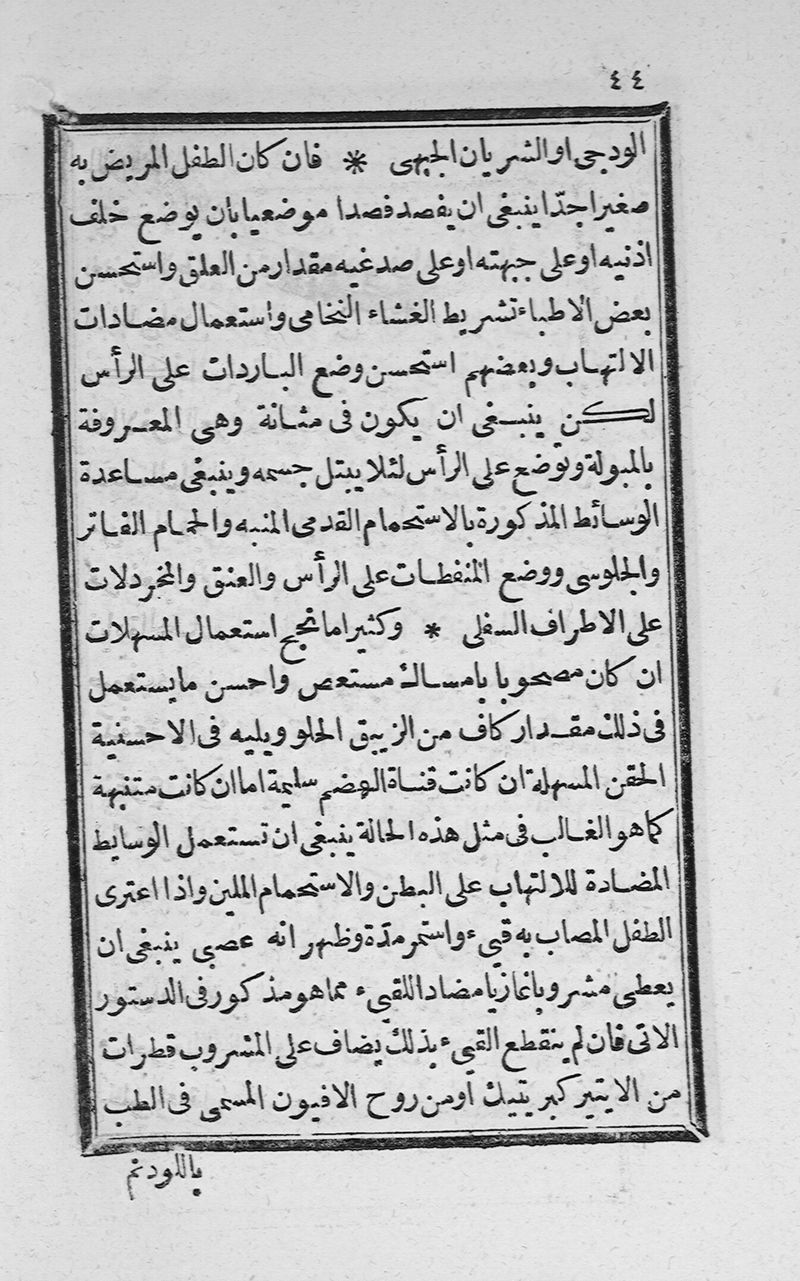 ٤٤
الودجى او الشريان الجبهى * فان كان الطفل المريض به
صغيرا جدّا ينبغى ان يفصد فصدا موضعيا بان يوضع خلف
اذنيه او على جبهته او على صدغيه مقدار من العلق واستحسن
بعض الاطباء تشريط الغشاء النخامى واستعمال مضادات
الالتهاب وبعضهم استحسن وضع الباردات على الرأس
لكن ينبغى ان يكون فى مثانة وهى المعروفة
بالمبولة وتوضع على الرأس لئلا يبتل جسمه وينبغى مساعدة
الوسائط المذكورة بالاستحمام القدمى المنبه والحمام الفاتر
والجلوسى ووضع المنفطات على الرأس والعنق والمخردلات
على الاطراف السفلى * وكثيرا ما نجح استعمال المسهلات
ان كان مصحوبا بامساك مستعص واحسن ما يستعمل
فى ذلك مقدار كاف من الزيبق الحلو ويليه فى الاحسنية
الحقن المسهلة ان كانت قناة الهضم سليمة اما ان كانت متنبهة
كما هو الغالب فى مثل هذه الحالة ينبغى ان تستعمل الوسايط
المضادة للالتهاب على البطن والاستحمام الملين واذا اعترى
الطفل المصاب به قيء واستمر مدّة وظهر انه عصبى ينبغى ان
يعطى مشروبا غازيا مضادا للقيء مما هو مذكور فى الدستور
الاتى فان لم ينقطع القيء بذلك يضاف على المشروب قطرات
من الايتير كبريتيك او من روح الافيون المسمى فى الطب
باللودنم